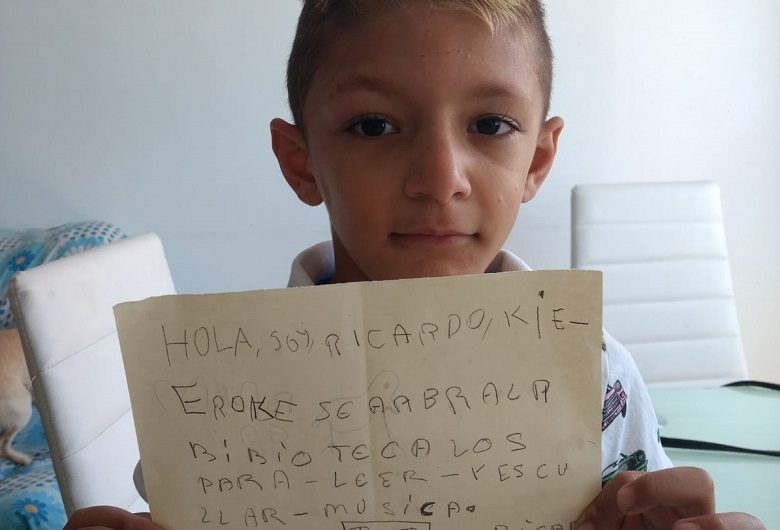 HOLA, SOY, RICARDO, KIE-
EROKE SEAABRALA
BIBIOTECALOS
PARA-LEER-YESCU
LLAR-MUSICA.